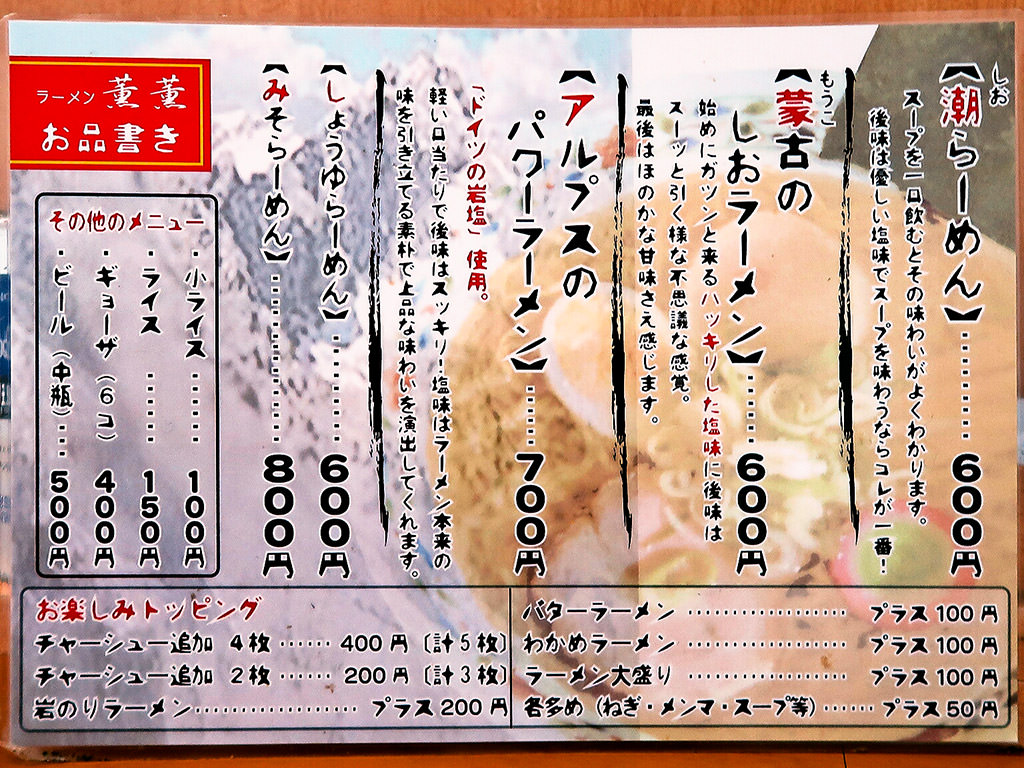 ラーメン 薫薫
お品書き
しお
【潮らーめん】‥‥‥‥ 600円
スープを一口飲むとその味わいがよくわかります。
後味は優しい塩味でスープを味わうならコレが一番!
もうこ
【蒙古の
しおラーメン】‥‥‥ 600円
始めにガツンと来るハッキリした塩味に後味は
スーッと引く様な不思議な感覚。
最後はほのかな甘味さえ感じます。
【アルプスの
パクーラーメン】‥‥‥ 700円
「ドイツの岩塩」使用。
軽い口当たりで後味はスッキリ!塩味はラーメン本来の
味を引き立てる素朴で上品な味わいを演出してくれます。
【しょうゆらーめん】‥‥‥‥ 600円
【みそらーめん】‥‥‥‥‥‥ 800円
その他のメニュー
・小ライス ‥‥‥ 100円
・ライス ‥‥‥ 150円
・ギョーザ(6コ) 400円
・ビール(中瓶)‥‥ 500円
お楽しみトッピング
チャーシュー追加 4枚 ‥‥‥ 400円〔計5枚〕
チャーシュー追加 2枚 ‥‥‥ 200円〔計3枚〕
岩のりラーメン‥‥‥‥‥‥‥ プラス200円
バターラーメン ‥‥‥‥‥‥‥ プラス100円
わかめラーメン ‥‥‥‥‥‥‥ プラス100円
ラーメン大盛り ‥‥‥‥‥‥‥ プラス100円
各多め(ねぎ・メンマ・スープ等)‥‥‥ プラス50円